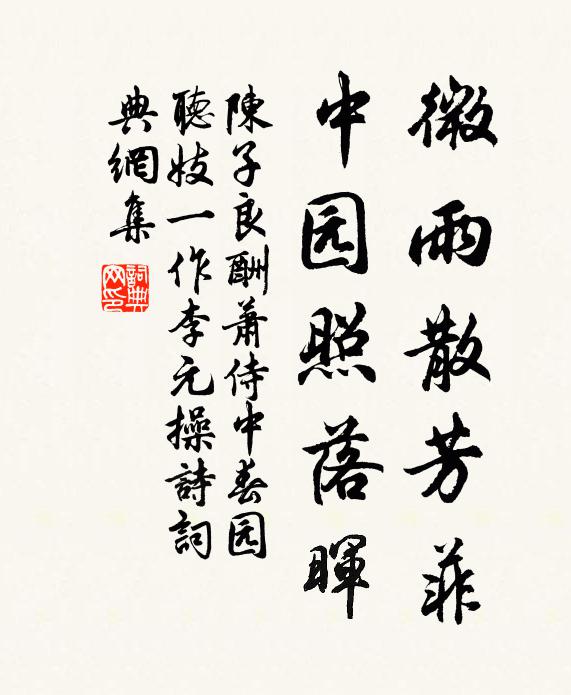 微雨散芳菲
中园照落暉
陳子良酬蕭侍中春园
聽妓一作李元操詩詞
典網集
詞典
网印